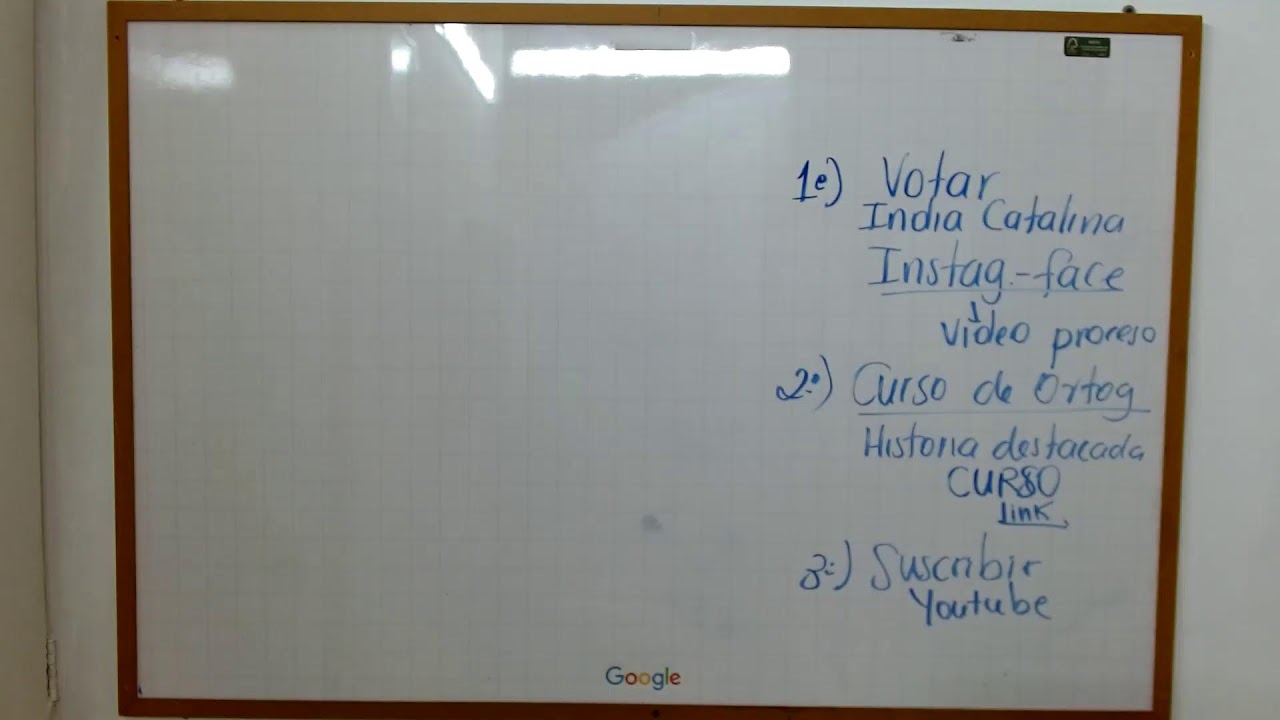 1º) Votar
India Catalina
Instag.-face
Video proceso
2º) Curso de Ortog
Historia destacada
CURSO
Link
3º) Suscribir
Youtube
Google